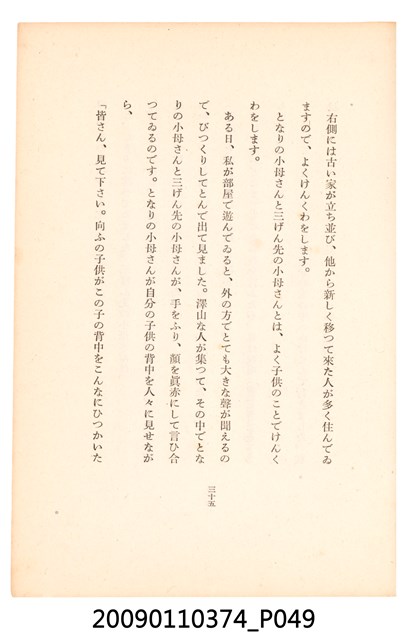 右側には古い家が立ち並び、他から新しく移つて來た人が多く住んでゐ
ますので、よくけんくわをします。
となりの小母さんと三げん先の小母さんとは、よく子供のことでけんく
わをします。
ある日、私が部屋で遊んでゐると、外の方でとても大きな聲が聞えるの
で、びつくりしてとんで出て見ました。澤山な人が集つて、その中でとな
りの小母さんと三げん先の小母さんが、手をふり、顏を眞赤にして言ひ合
つてゐるのです。となりの小母さんが自分の子供の背中を人々に見せなが
ら、
「皆さん、見て下さい。向ふの子供がこの子の背中をこんなにひつかいた
三十五
20090110374_P049